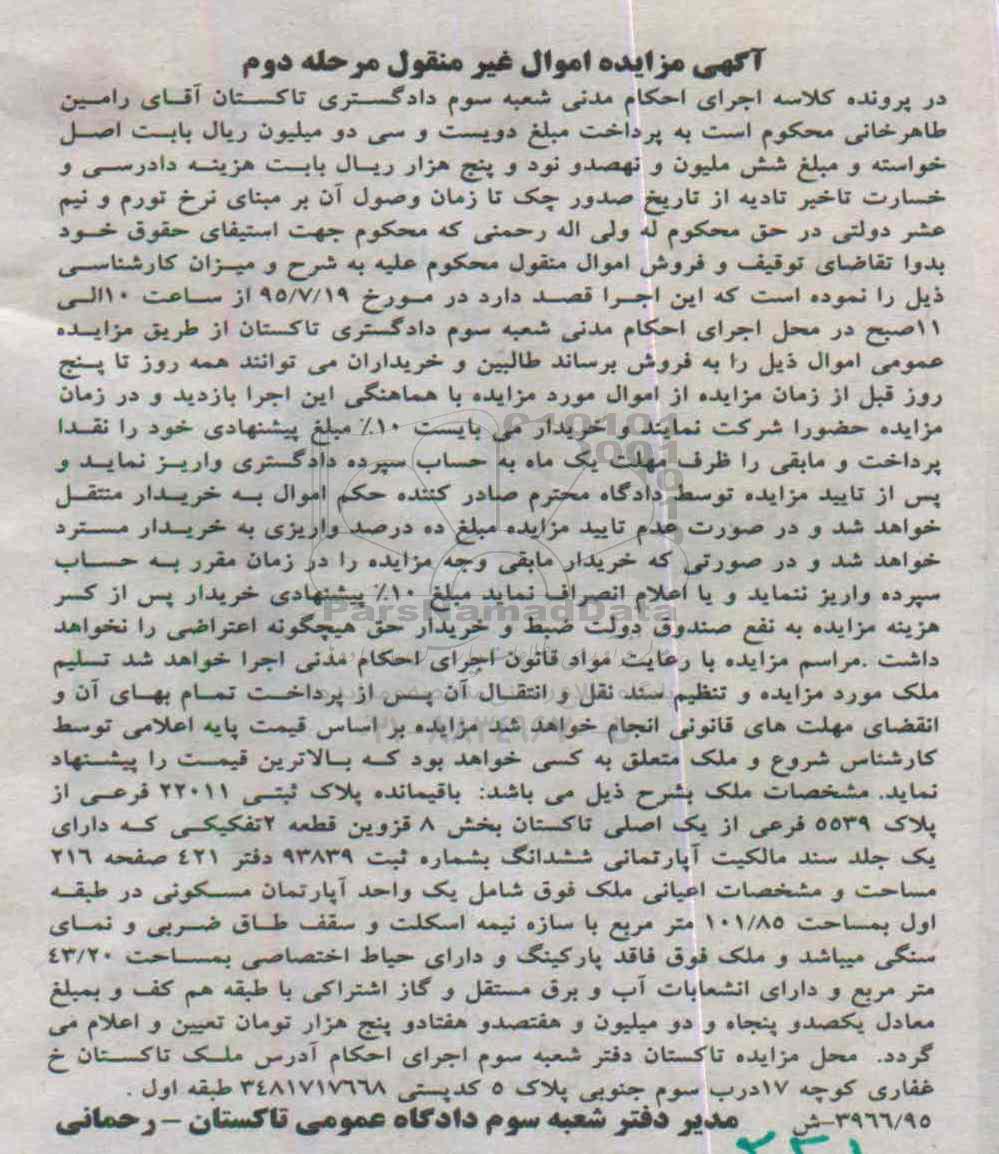 آگهی مزایده اموال غیر منقول مرحله دوم
در پرونده کلاسه اجرای احکام مدنی شعبه سوم دادگستری تاکستان آقای رامین
طاهرخانی محکوم است به پرداخت مبلغ دویست و سی دو میلیون ریال بابت اصل
خواسته و مبلغ شش ملیون و نهصدو نود و پنج هزار ریال بابت هزینه دادرسی و
خسارت تاخیر تادیه از تاریخ صدور چک تا زمان وصول آن بر مبنای نرخ تورم و نیم
عشر دولتی در حق محکوم له ولی اله رحمنی که محکوم جهت استیفای حقوق خود
بدوا تقاضای توقیف و فروش اموال منقول محکوم علیه به شرح و میزان کارشناسی
ذیل را نموده است که این اجرا قصد دارد در مورخ ۹۵/۷/۱۹ از ساعت ۱۰الی
۱۱صبح در محل اجرای احکام مدنی شعبه سوم دادگستری تاکستان از طریق مزایده
عمومی اموال ذیل را به فروش برساند طالبین و خریداران می توانند همه روز تا پنج
روز قبل از زمان مزایده از اموال مورد مزایده با هماهنگی این اجرا بازدید و در زمان
مزایده حضورا شرکت نمایند و خریدار می بایست ۱۰٪ مبلغ پیشنهادی خود را نقدا
پرداخت و مابقی را ظرف مهلت یک ماه به حساب سپرده دادگستری واریز نماید و
پس از تایید مزایده توسط دادگاه محترم صادر کننده حکم اموال به خریدار منتقل
خواهد شد و در صورت عدم تایید مزایده مبلغ ده درصد واریزی به خریدار مسترد
خواهد شد و در صورتی که خریدار مابقی وجه مزایده را در زمان مقرر به حساب
سپرده واریز ننماید و یا اعلام انصراف نماید مبلغ ۱۰٪ پیشنهادی خریدار پس از کسر
هزینه مزایده به نفع صندوق دولت ضبط و خریدار حق هیچگونه اعتراضی را نخواهد
داشت .مراسم مزایده با رعایت مواد قانون اجرای احکام مدنی اجرا خواهد شد تسلیم
ملک مورد مزایده و تنظیم سند نقل و انتقال آن پس از پرداخت تمام بهای آن و
انقضای مهلت های قانونی انجام خواهد شد مزایده بر اساس قیمت پایه اعلامی توسط
کارشناس شروع و ملک متعلق به کسی خواهد بود که بالاترین قیمت را پیشنهاد
نماید. مشخصات ملک بشرح ذیل می باشد: باقیمانده پلاک ثبتی ۲۲۰۱۱ فرعی از
پلاک ۵۵۳۹ فرعی از یک اصلی تاکستان بخش ۸ قزوین قطعه ۲تفکیکی که دارای
یک جلد سند مالکیت آپارتمانی ششدانگ بشماره ثبت ۹۳۸۳۹ دفتر ٤۲۱ صفحه ۲۱٦
مساحت و مشخصات اعیانی ملک فوق شامل یک واحد آپارتمان مسکونی در طبقه
اول بمساحت ۱۰۱/۸۵ متر مربع با سازه نیمه اسکلت و سقف طاق ضربی و نمای
سنگی میباشد و ملک فوق فاقد پارکینگ و دارای حیاط اختصاصی بمساحت ٤۳/۲۰
متر مربع و دارای انشعابات آب و برق مستقل و گاز اشتراکی با طبقه هم کف و بمبلغ
معادل یکصدو پنجاه و دو میلیون و هفتصدو هفتادو پنج هزار تومان تعیین و اعلام می
گردد. محل مزایده تاکستان دفتر شعبه سوم اجرای احکام آدرس ملک تاکستان خ
غفاری کوچه ۱۷درب سوم جنوبی پلاک ۵ کدپستی ۳٤۸۱۷۱۷٦٦۸ طبقه اول .
۳۹٦٦/۹۵-ش مدیر دفتر شعبه سوم دادگاه عمومی تاکستان – رحمانی
ParsNamadData